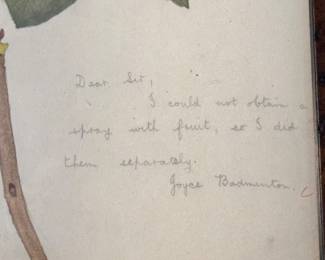 Dear Sir,
I could not obtain a
spray with fruit, so I did
them separately.
Joyce Badminton.